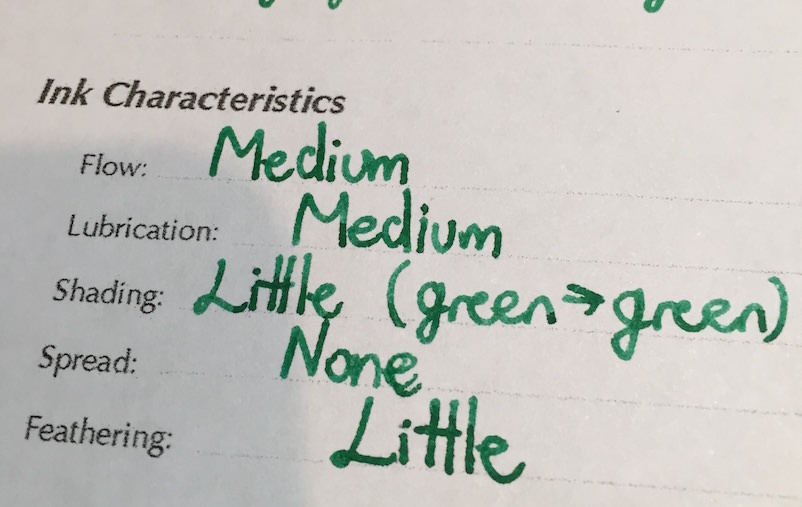 Ink Characteristics
Flow: Medium
Lubrication: Medium
Shading: Little (green → green)
Spread: None
Feathering: Little